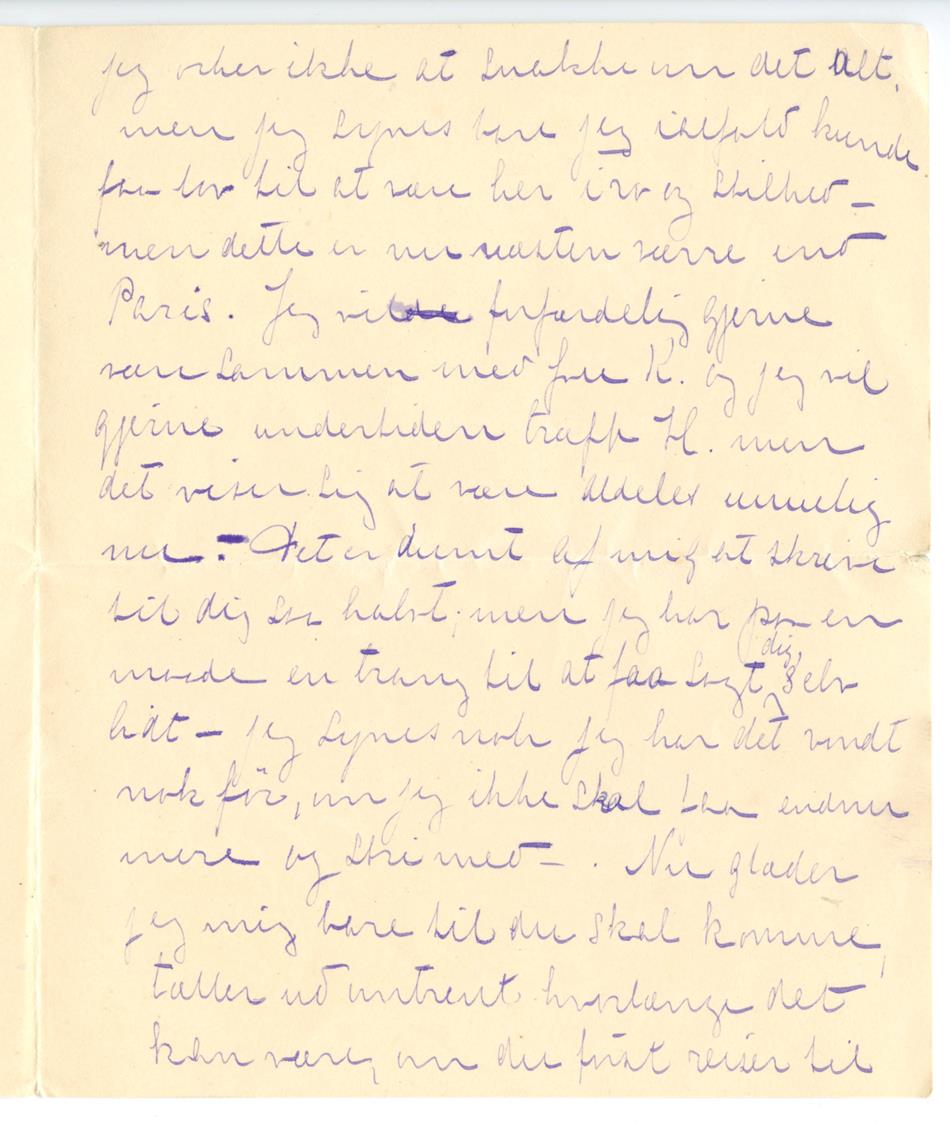 jeg orker ikke at snakke om det alt,
men jeg synes bare jeg ialfald kunde
faa lov til at være her i ro og stilhed –
men dette er nu næsten værre end
Paris. Jeg vilde forfærdelig gjerne
være sammen med fru K. og jeg vil
gjerne undertiden træffe H. men
det viser sig at være aldeles umulig
nu. – Det er dumt af mig at skrive
til dig saa halvt; men jeg har paa en
maade en trang til at faa sagt dig, selv
lidt – jeg synes nok jeg har det vondt
nok för, om jeg ikke skal faa endnu
mere og stri med – . Nu glæder
jeg mig bare til du skal komme,
tæller ud omtrent hvorlænge det
kan være, om du först reiser til